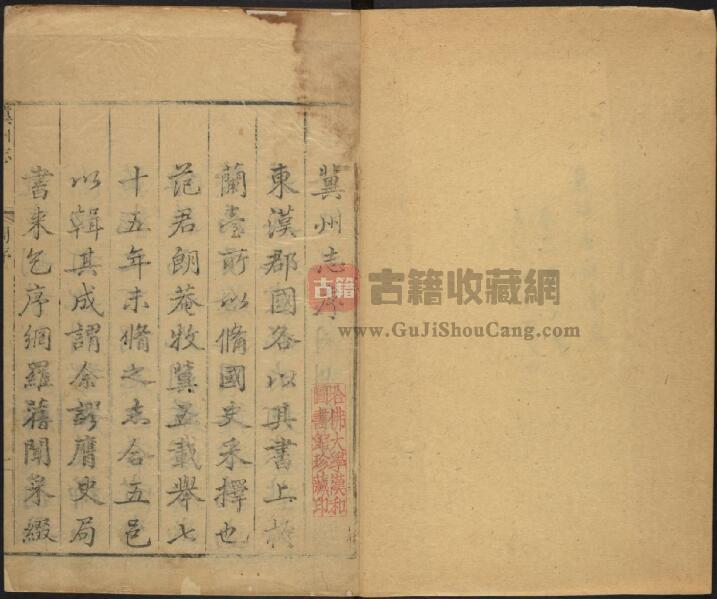 冀州志序
東漢郡國各以其書上於
蘭臺所以備國史采擇也
范君朗菴牧冀五載舉七
十五年未脩之志合五邑
以輯其成謂余謬膺史局
書来乞序網羅舊聞采綴
冀州志
古籍
古籍收藏網
www.GuJiShouCang.com
哈佛大學漢和
圖書館珍藏印